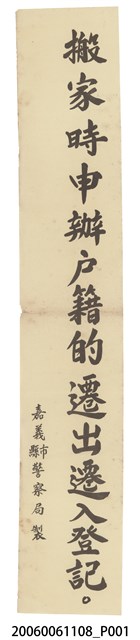 搬家時申辦户籍的遷出遷入登記。
嘉義市縣警察局製
20060061108_P001